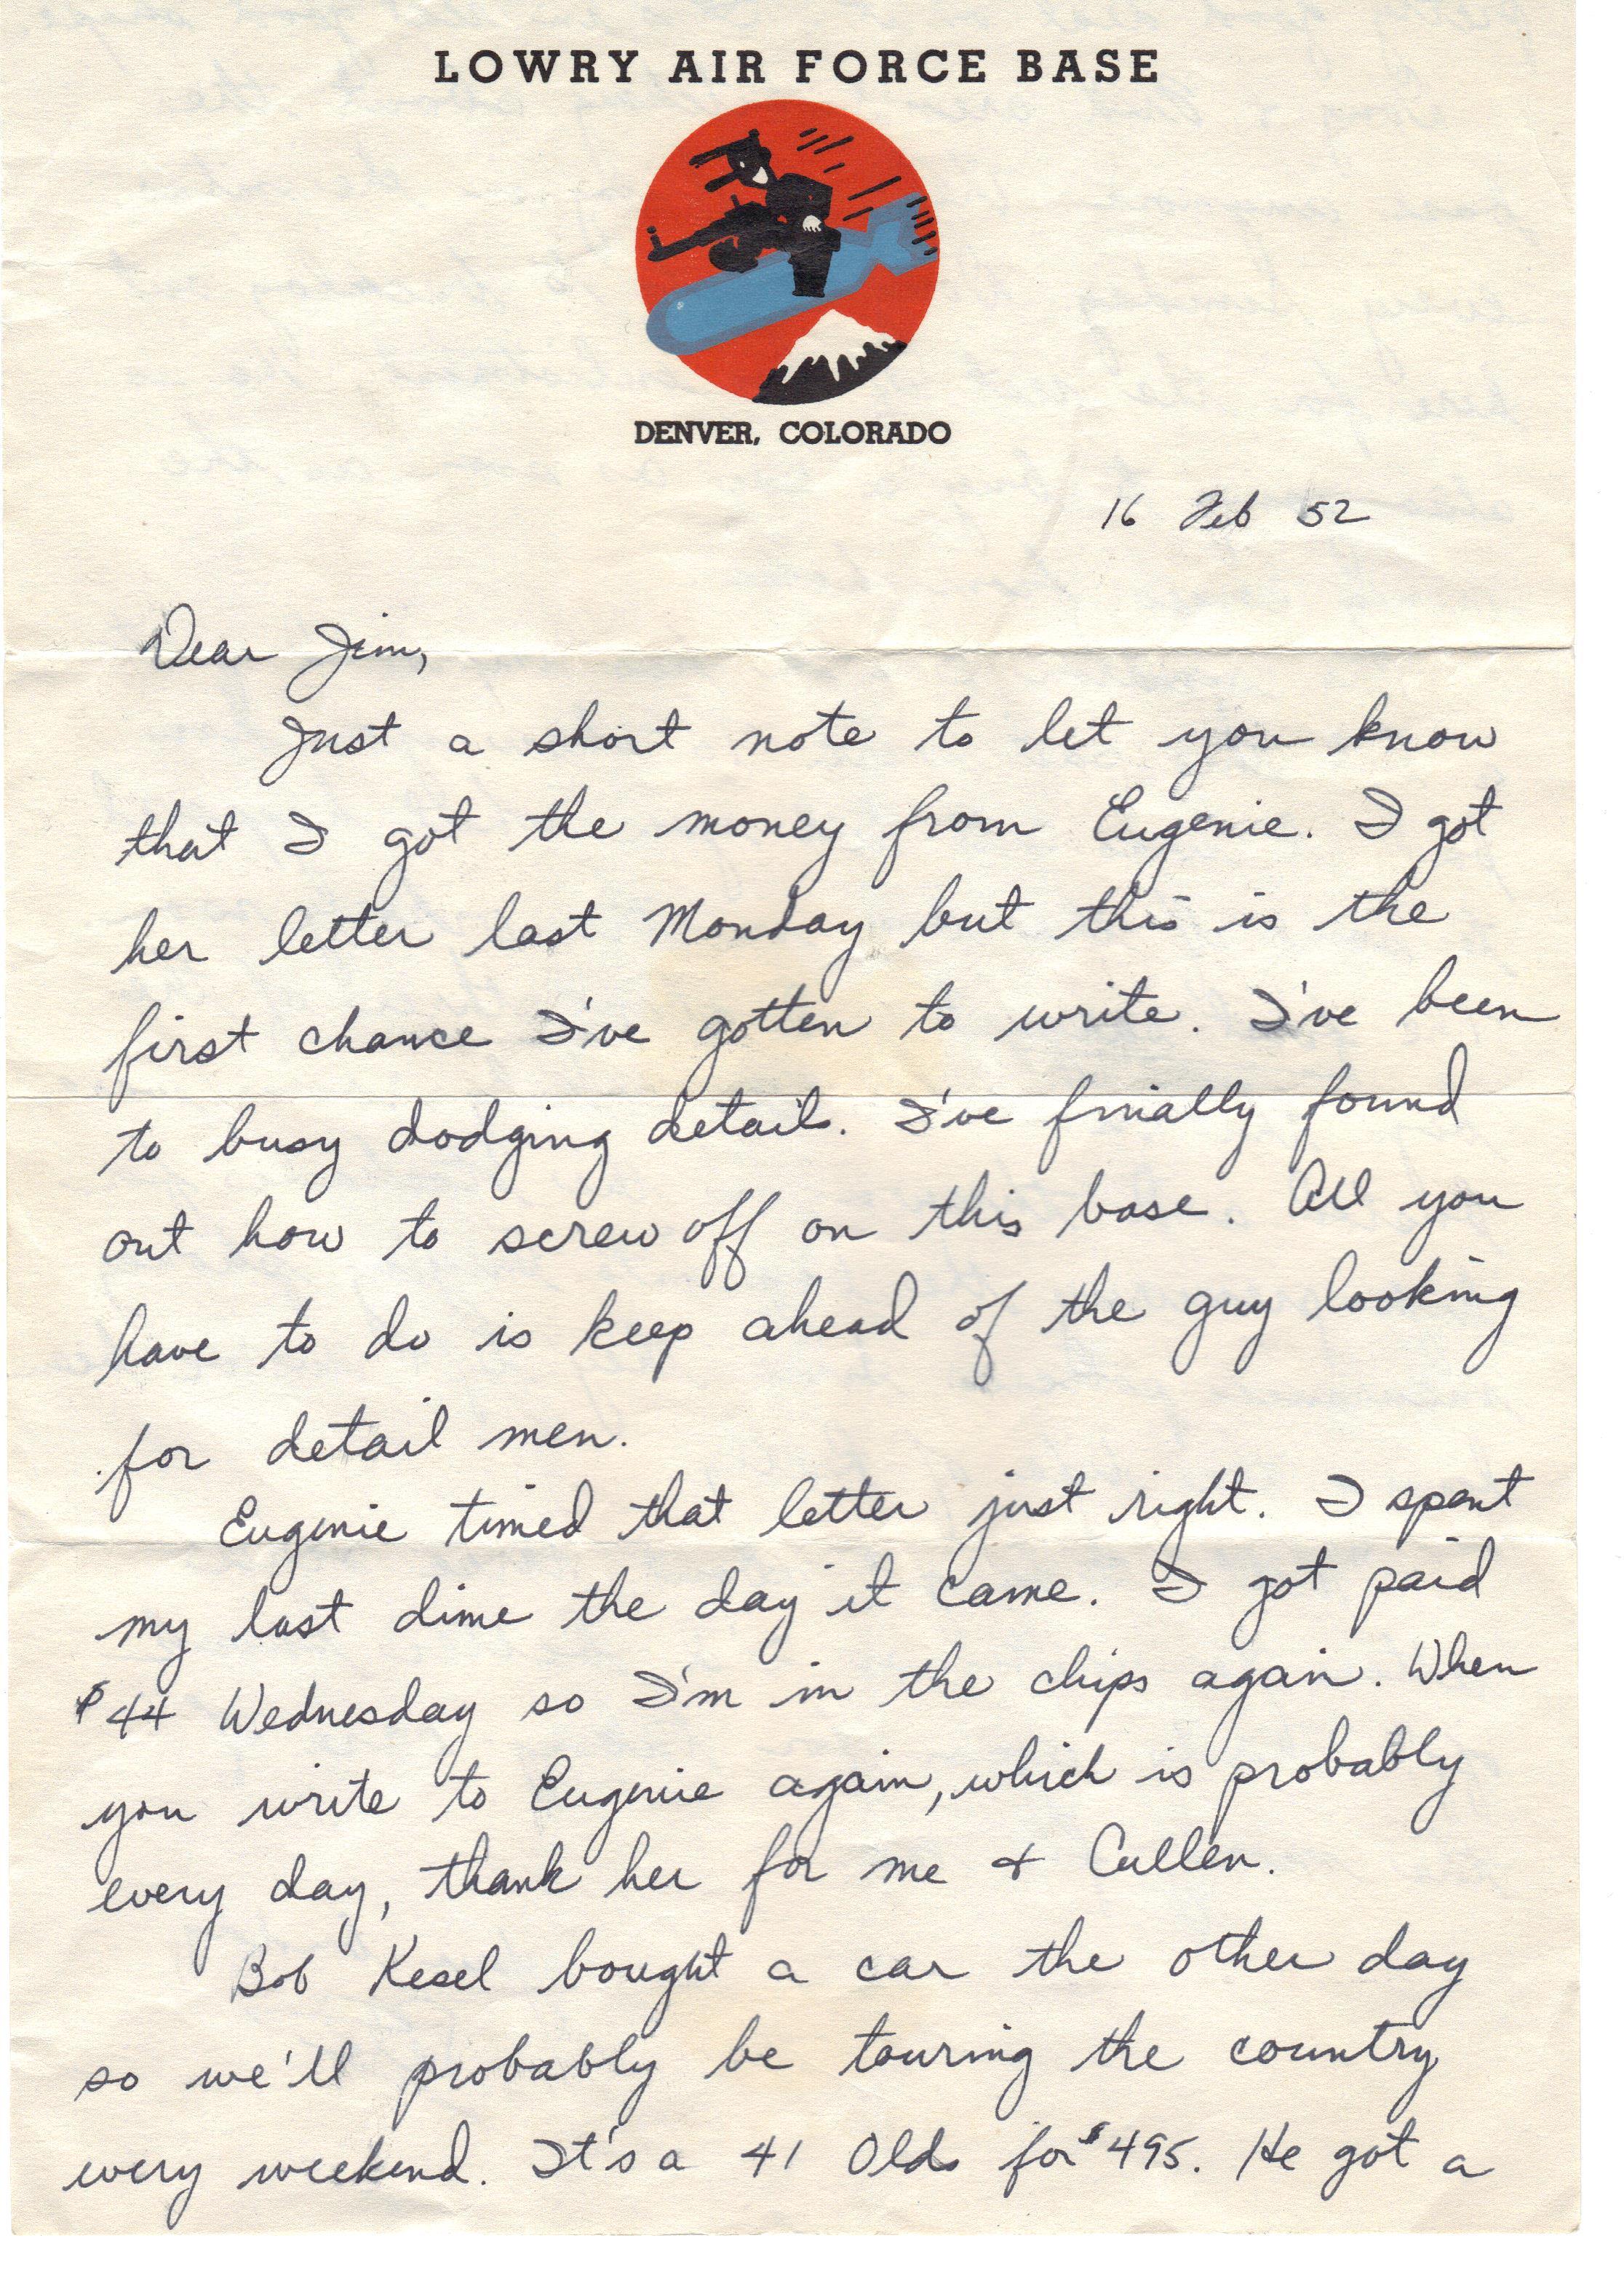 LOWRY AIR FORCE BASE
DENVER, COLORADO
16 Feb 52
Dear Jim,
Just a short note to let you know
that I got the money from Eugenie. I got
her letter last Monday but this is the
first chance I've gotten to write. I've been
to busy dodging details. I've finally found
out how to screw off on this base. All you
have to do is keep ahead of the guy looking
for detail men.
Eugenie timed that letter just right. I spent
my last dime the day it came. I got paid
$44 Wednesday so I'm in the chips again. When
you write to Eugenie again, which is probably
every day, thank her for me + Cullen.
Bob Kesel bought a car the other day
so we'll probably be touring the country
every weekend. It's a 41 Olds for $495. He got a